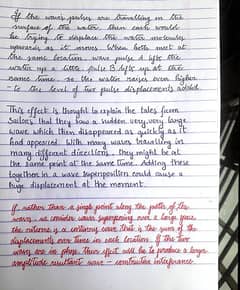 If the wave pulses are travelling in the
surface of the water then each would
be trying to displace the water molecules
upwards as it moves. When both meet at
the same location wave pulse A lifts the
water up a little, pulse B lifts up at the
same time so the water raises even higher
- to the level of two pulse displacements added.
This effect is thought to explain the tales from
Sailors that they saw a sudden very, very large
wave which then disappeared as quickly as it
had appeared. With many waves travelling in
many different directions they might be at
the same point at the same time. Adding these
together in a wave superposition could cause a
huge displacement at the moment.
If rather than a single point along the path of the
waves we consider waves superposing over a large space
the outcome is a continuous wave that is the sum of the
displacements over time in each location. If the two
waves are in phase their effect will be to produce a larger
amplitude resultant wave - constructive interference